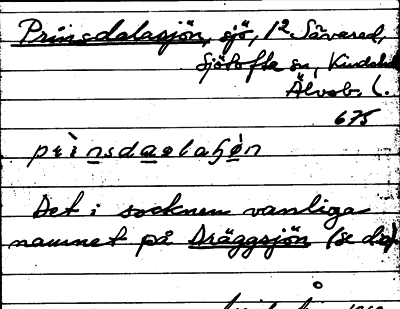 Prinsdalasjön, sjö, 12 Sävared,
Sjötofta sn, Kinds hd
Älvsb. l.
675
prìnsdaalaɧön
Det i socknen vanliga
namnet på Dräggsjön (se d.o).